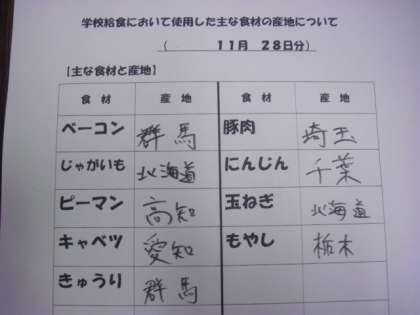 学校給食において使用した主な食材の産地について
( 11月 28日分)
【主な食材と産地】
食材 産地 食材 産地
ベーコン 群馬 豚肉 埼玉
じゃがいも 北海道 にんじん 千葉
ピーマン 高知 玉ねぎ 北海道
キャベツ 愛知 もやし 栃木
きゅうり 群馬